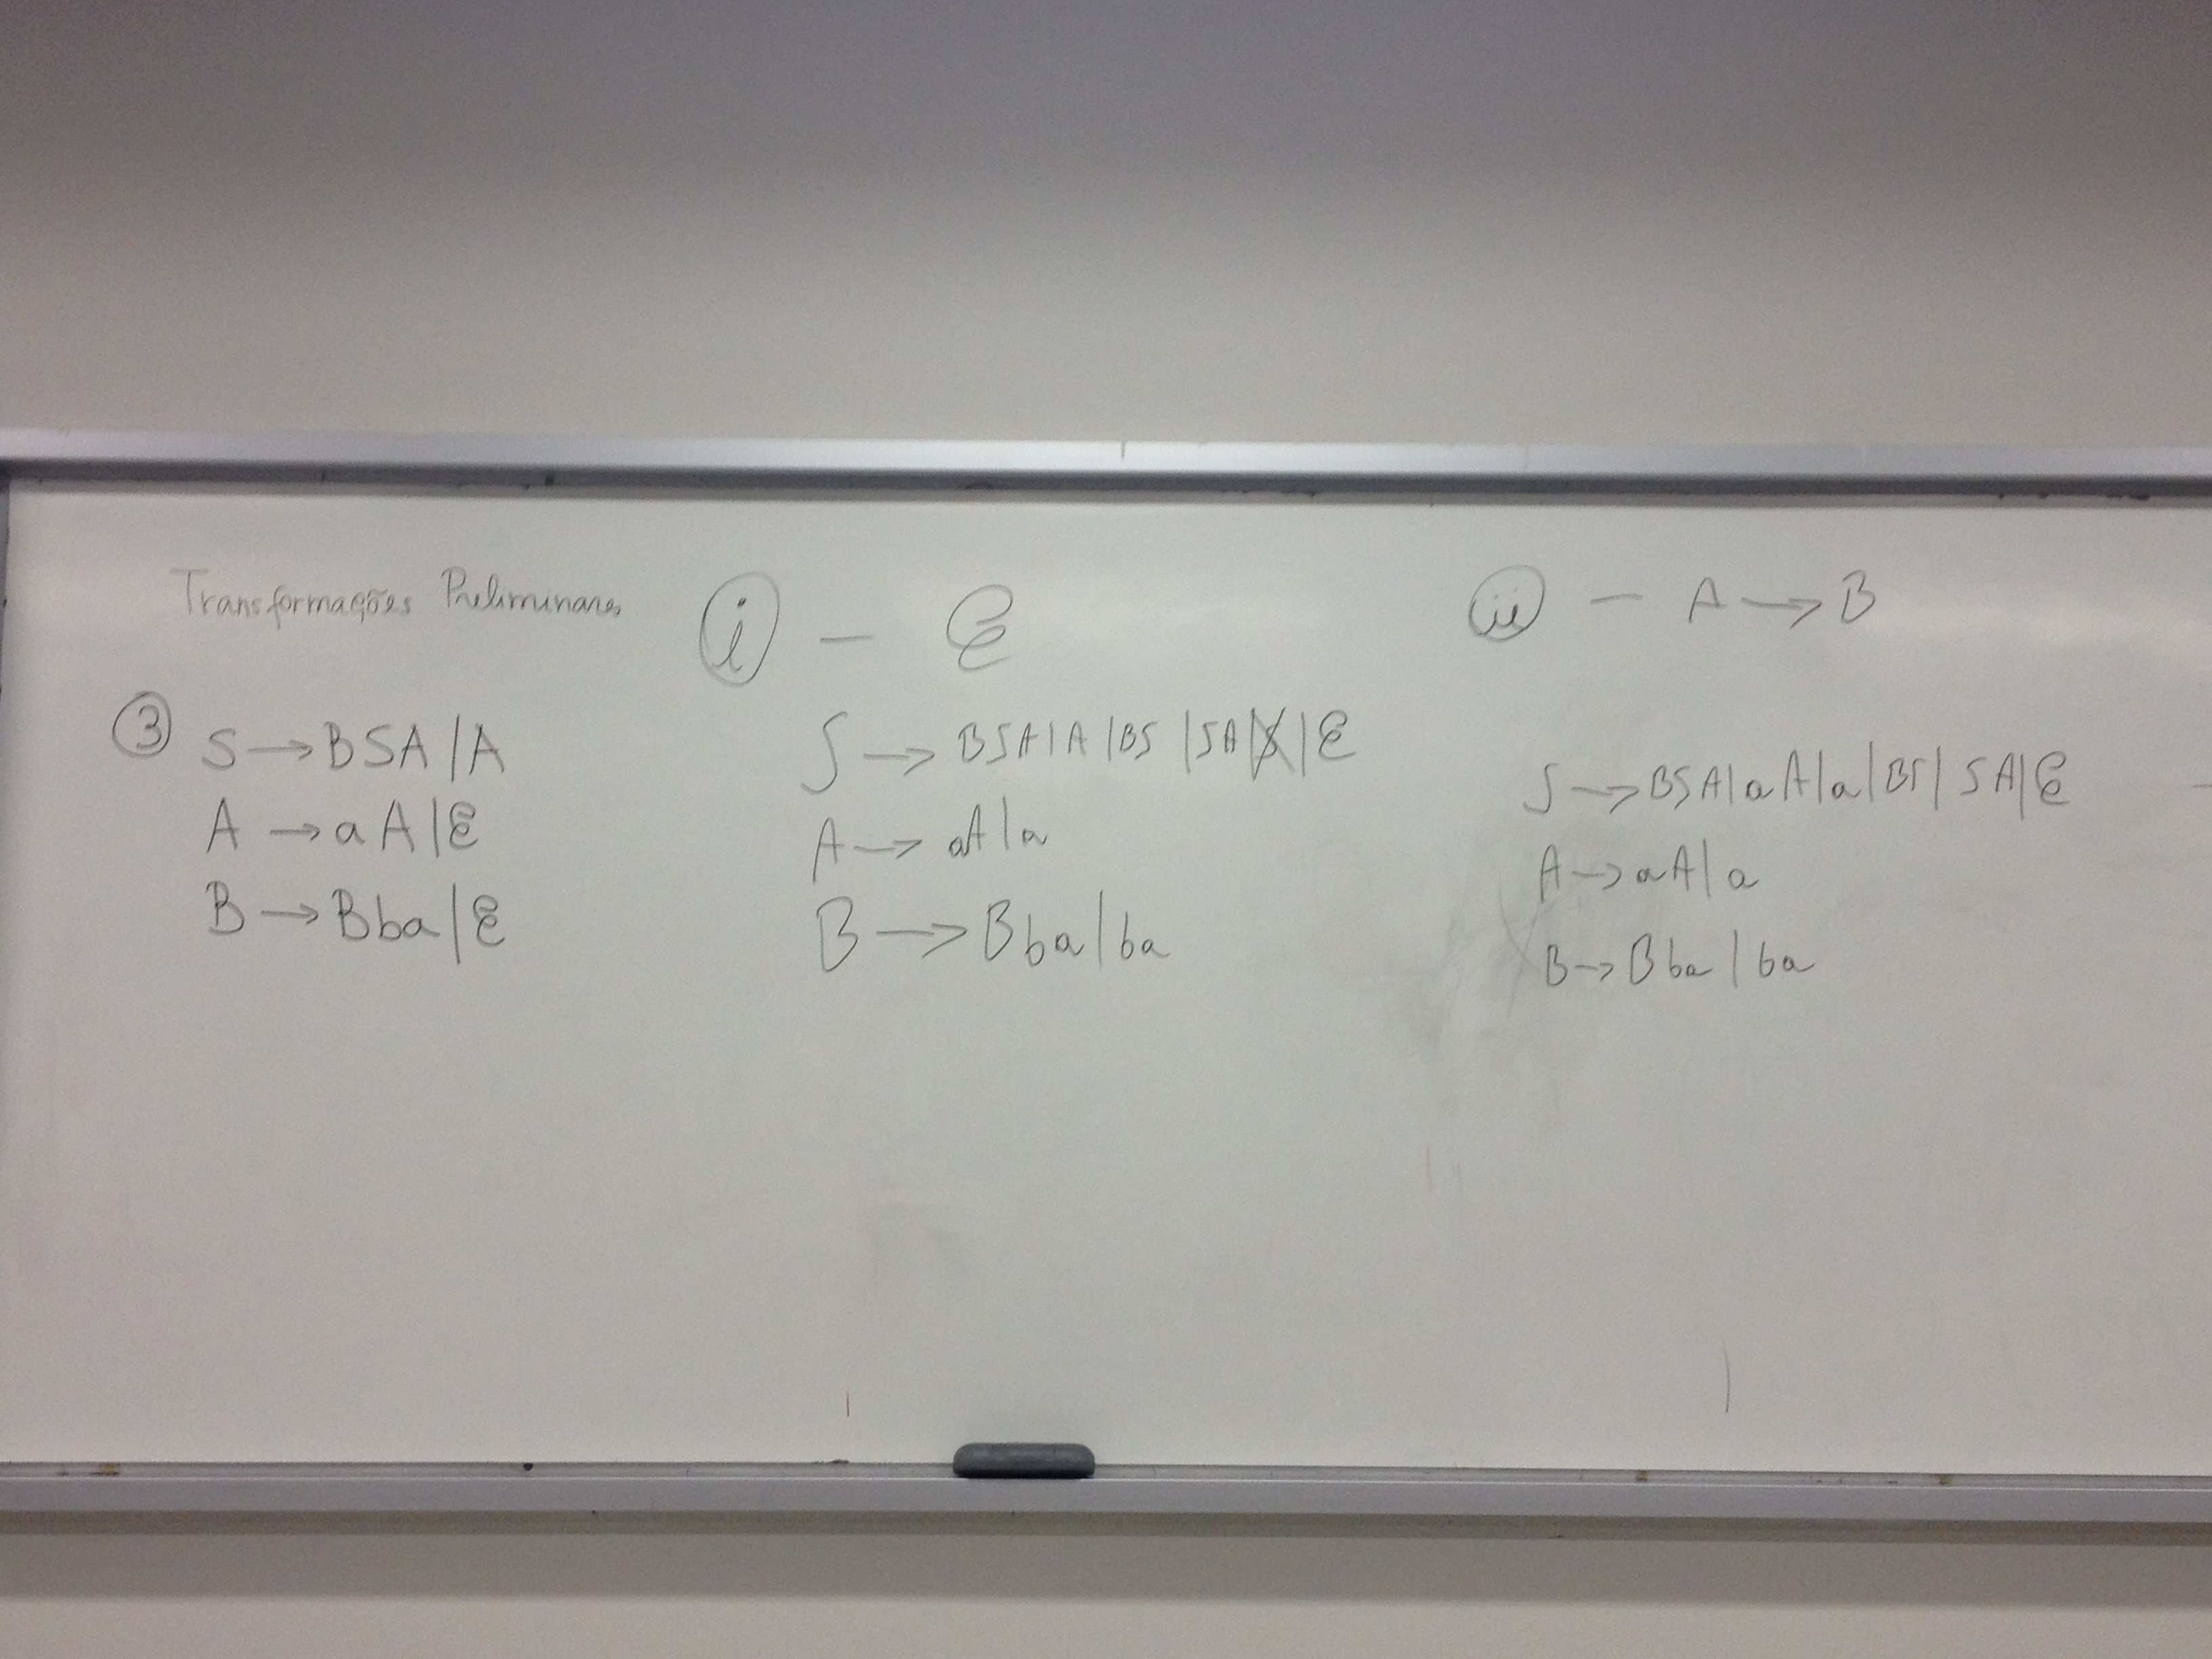 Transformações Preliminares
③ S → BSA | A
A → aA | ε
B → Bba | ε
ⓘ - ε
S → BSA | A | BS | SA | S | ε
A → aA | a
B → Bba | ba
ii - A → B
S → BSA | aA | a | BS | SA | ε
A → aA | a
B → Bba | ba